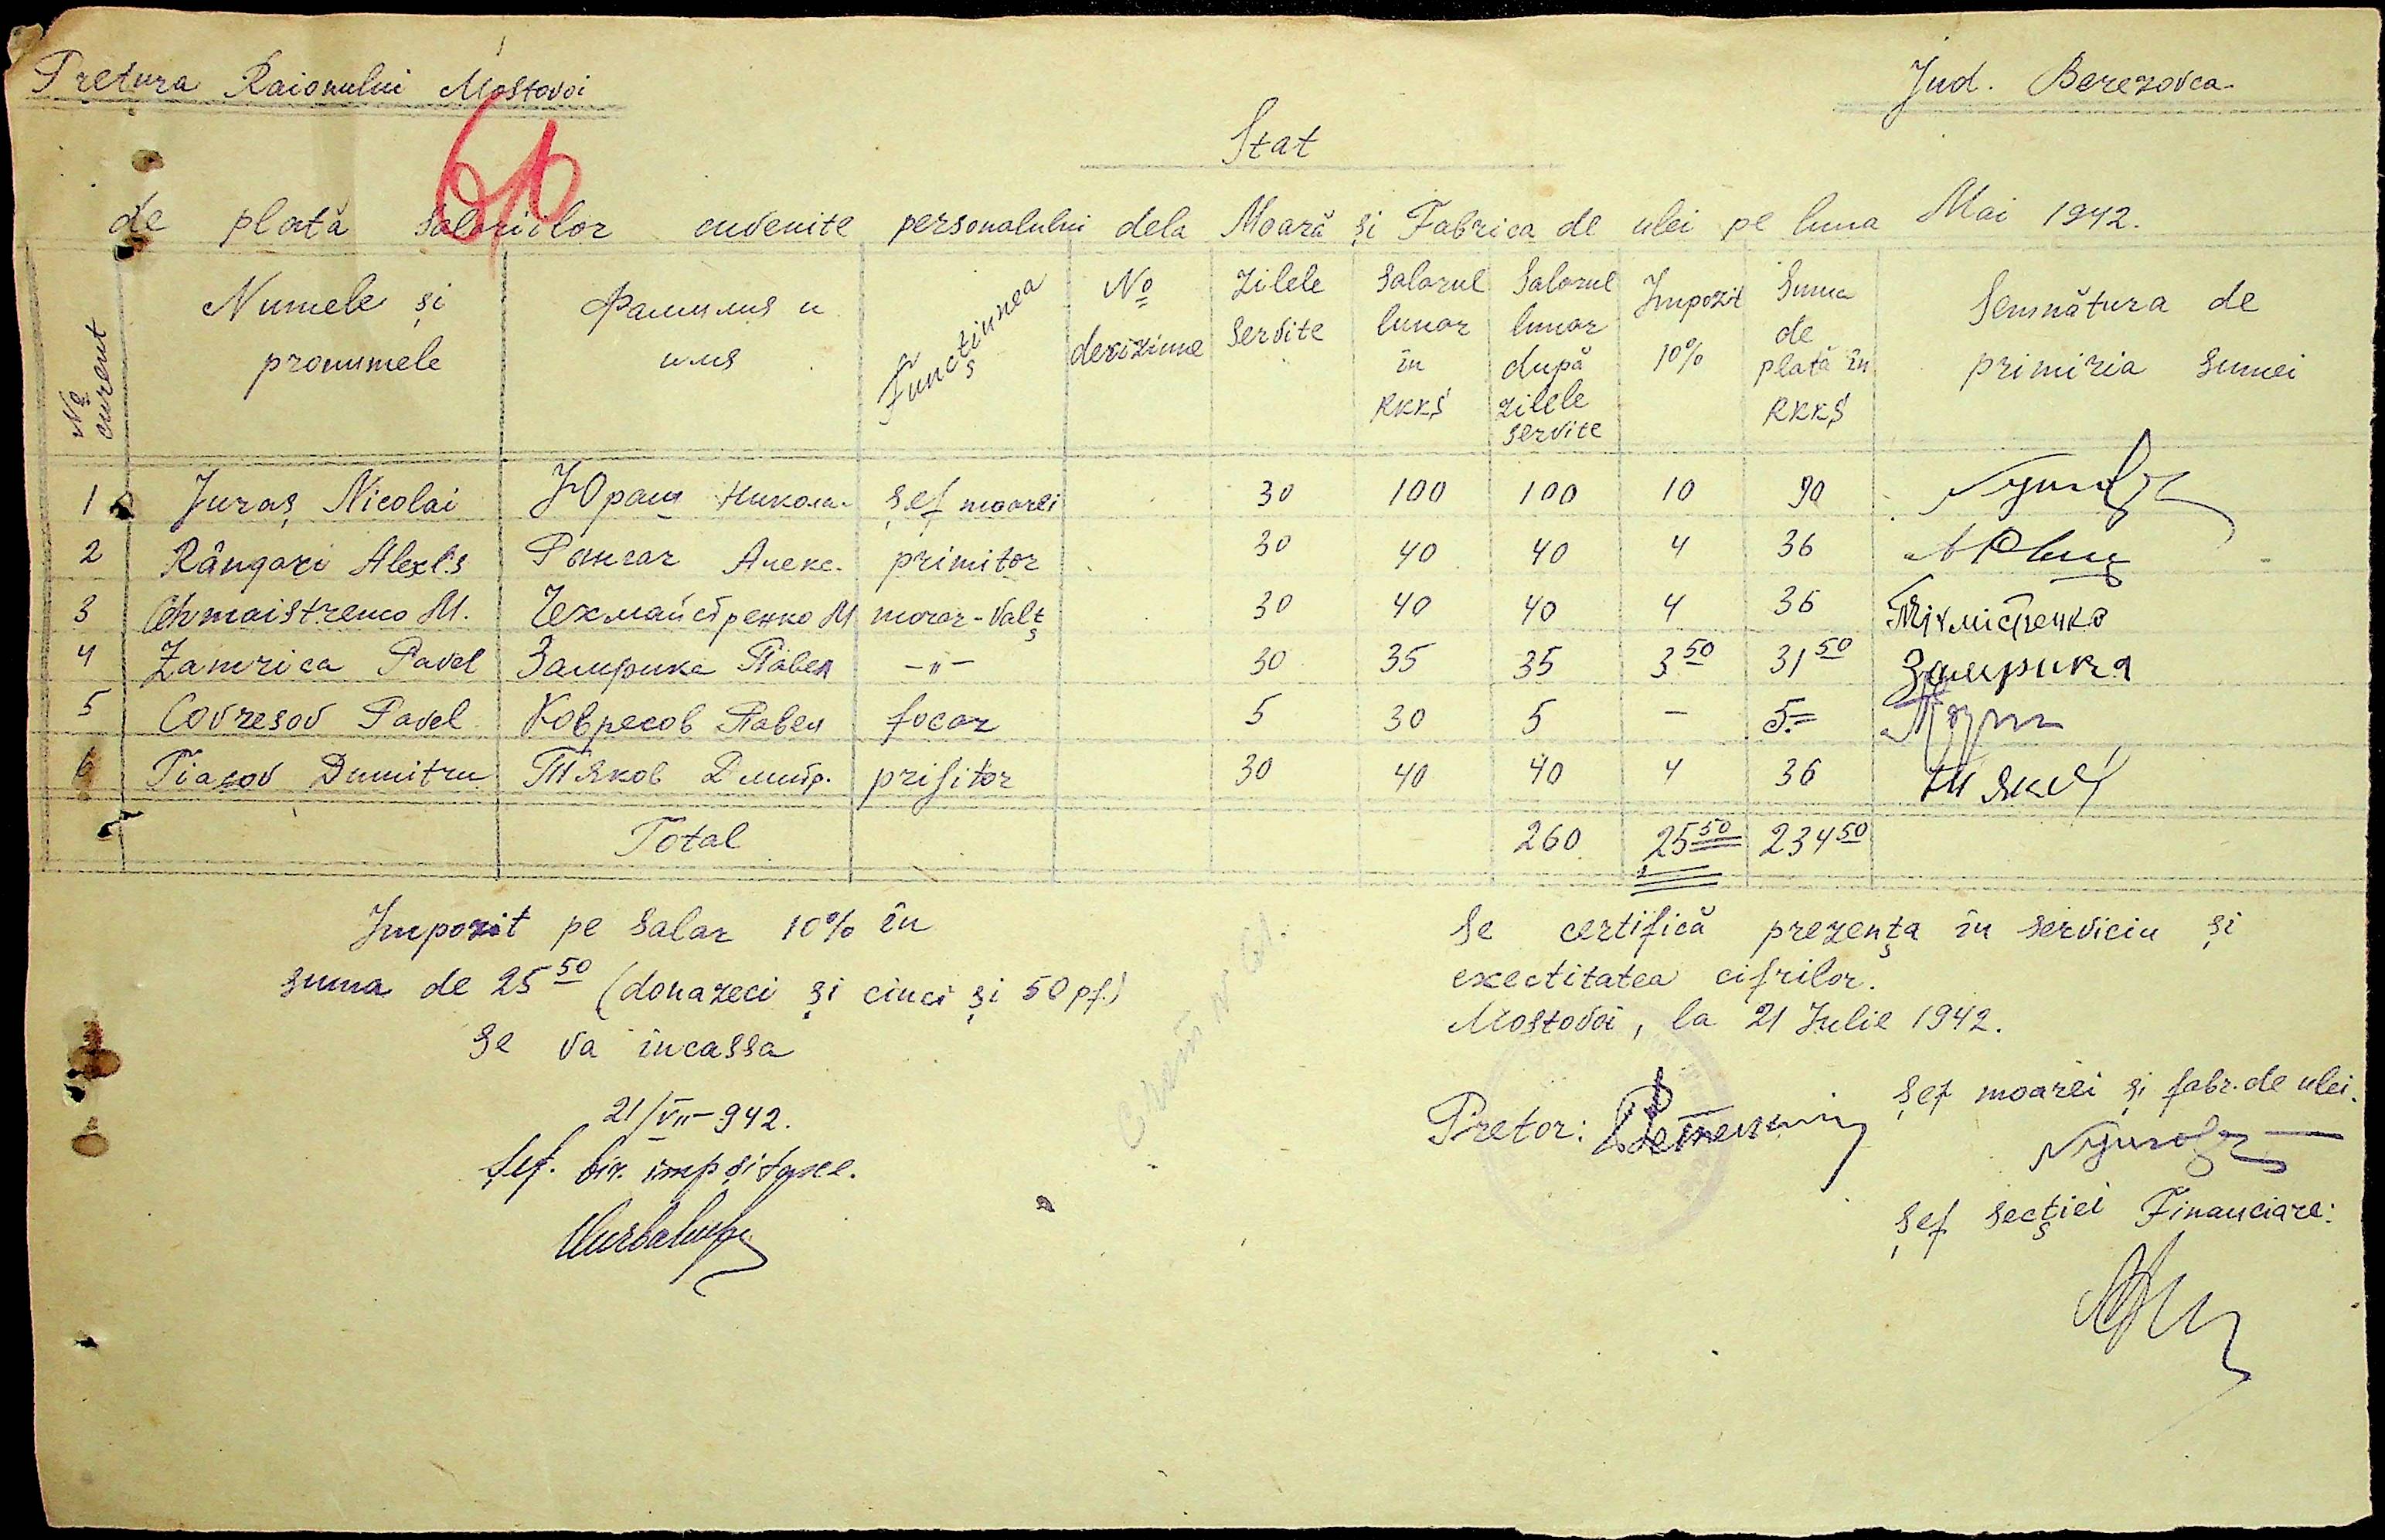 Pretura Raionului Mostovoi
Jud. Berezovca
66
Stat
de plată salariilor cuvenite personalului dela Moară și Fabrica de ulei pe luna Mai 1942.
№ curent | Numele și pronumele | Фамилия и имя | Funcțiunea | № deciziune | Zilele servite | Salarul lunar în RKKȘ | Salarul lunar după zilele servite | Impozit 10% | Suma de plată în RKKȘ | Semnătura de primiria sumei
1 Juraș Nicolai Юраш Никола- șef moarei 30 100 100 10 90
2 Rângari Alex. Рынгаг Алекс. primitor 30 40 40 4 36
3 Cehmaistrenco M. Чехмайстренко М morar-Valț 30 40 40 4 36
4 Zamrica Pavel Замрика Павел -"- 30 35 35 3 50 31 50 Замрика
5 Covresov Pavel Ковресов Павел focar 5 30 5 - 5.=
6 Tiacov Dumitru Тяков Дмитр. prisitor 30 40 40 4 36 Тяков
Total 260 25 50 234 50
Impozit pe salar 10% în
suma de 25 50 (douazeci și cinci și 50 pf.)
se va încassa
21/VII-942.
Șef. bir. imp și taxe.
Se certifică prezența în serviciu și
exectitatea cifrilor.
Mostovoi, la 21 Julie 1942.
Pretor:
Șef moarei și fabr. de ulei.
Șef secției Financiare: